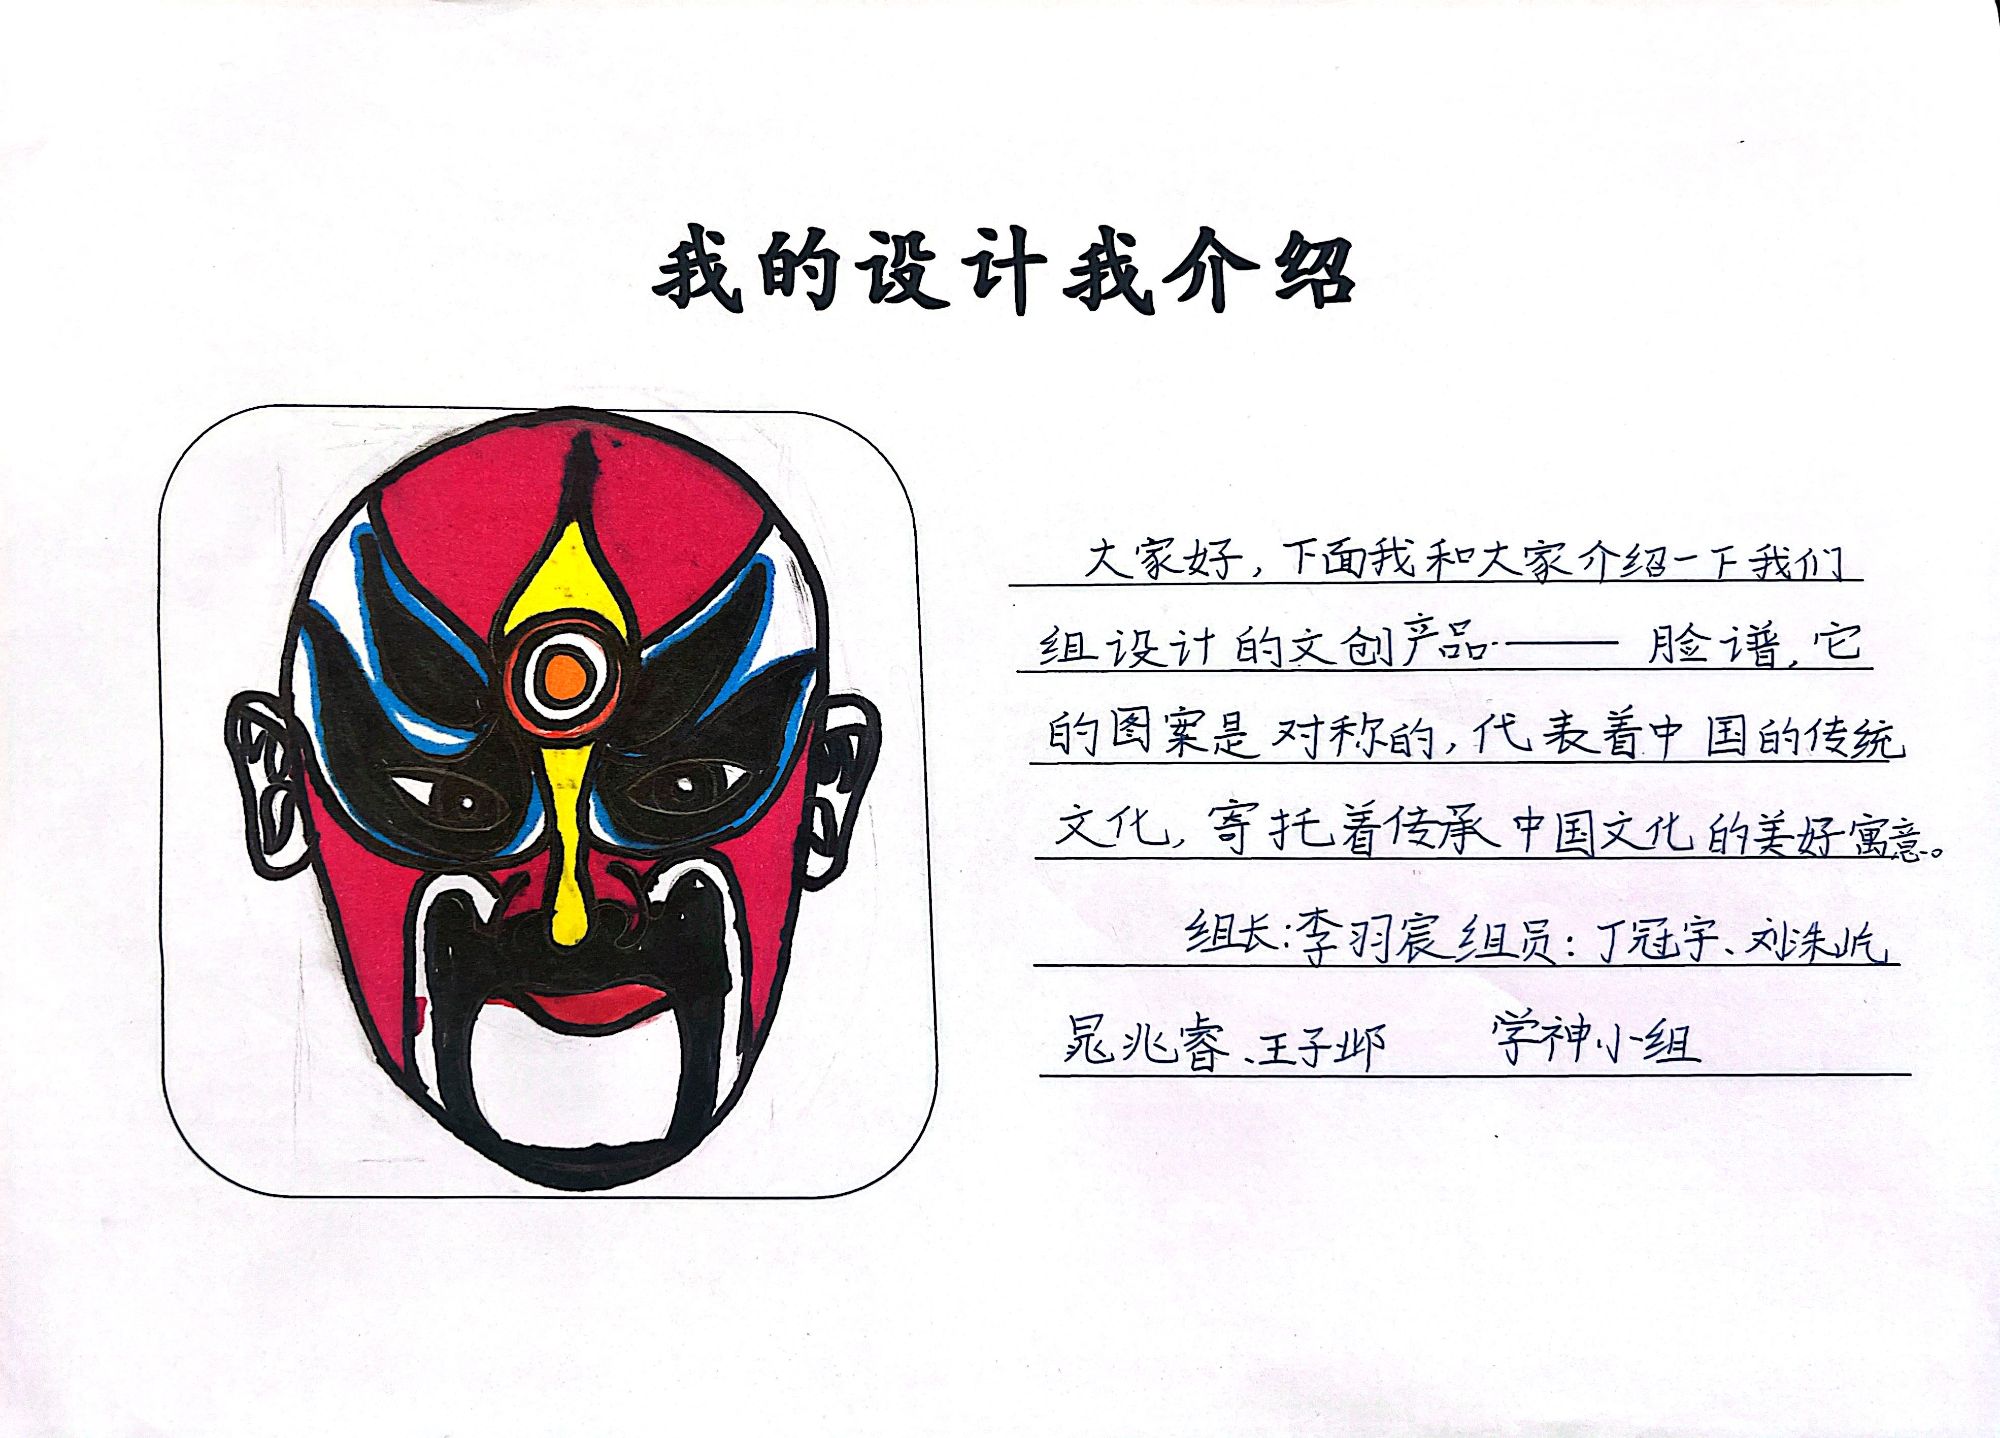 我的设计我介绍
大家好，下面我和大家介绍一下我们
组设计的文创产品——脸谱，它
的图案是对称的，代表着中国的传统
文化，寄托着传承中国文化的美好寓意。
组长：李羽宸 组员：丁冠宇、刘洙屹
晁兆睿、王子邺 学神小组